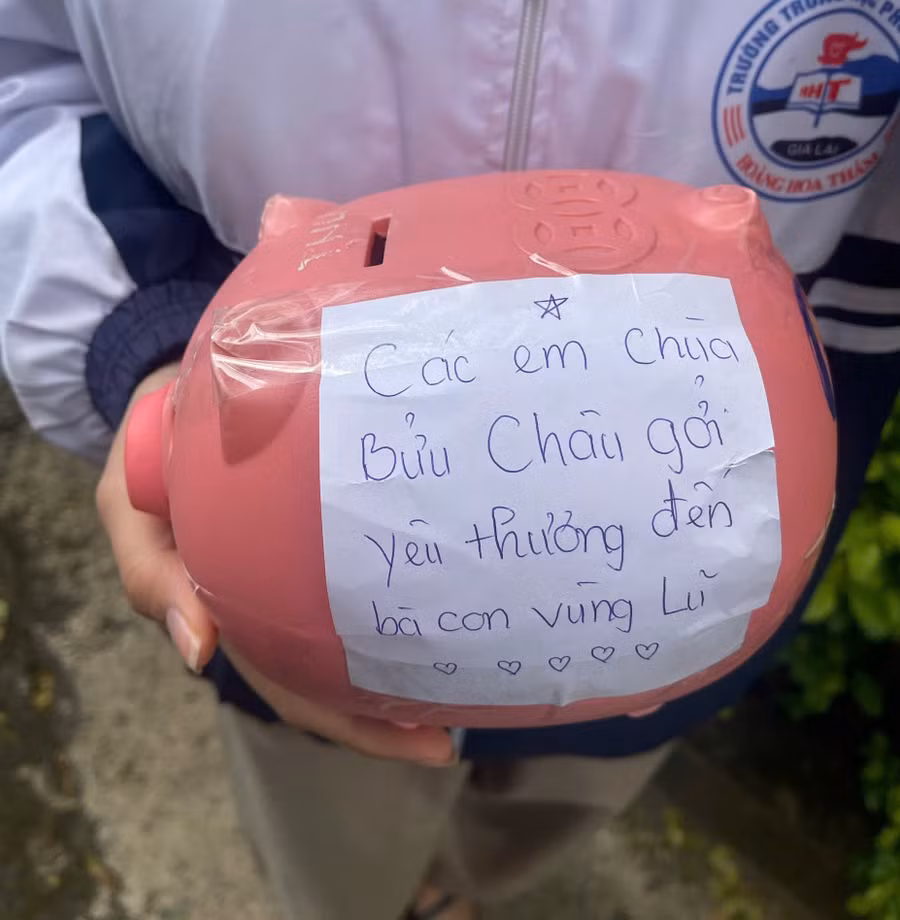 TRƯỜNG TRUNG HỌC PH
HHT
GIA LAI
HOÀNG HOA THÁM
Các em Chùa
Bửu Châu gởi
yêu thương đến
bà con vùng Lũ